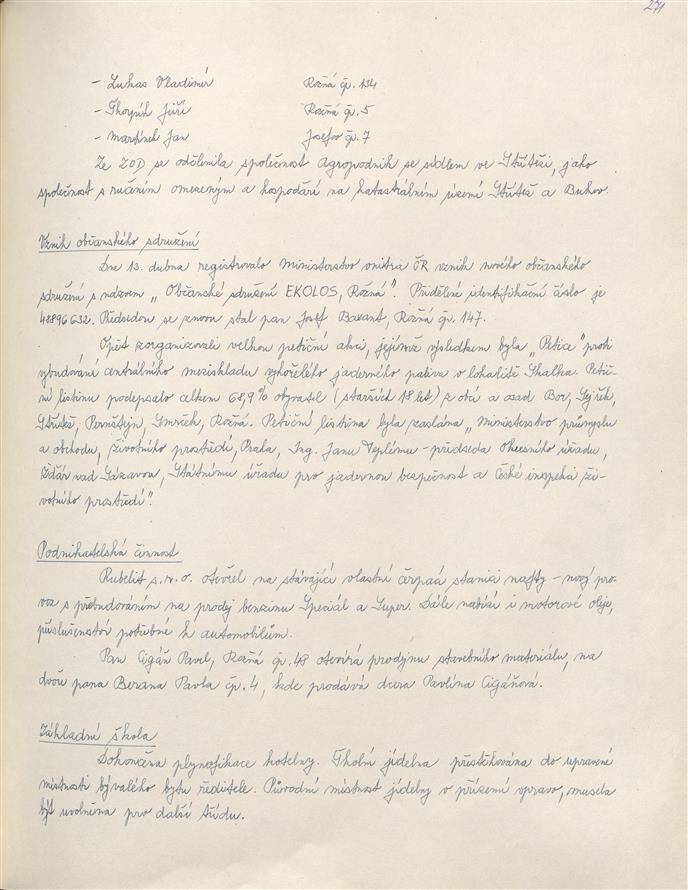 271
- Lukas Vladimír Rožná čp. 134
- Skoupík Jiří Rožná čp. 5
- Martínek Jan Josefov čp. 7
Ze ZOD se odčlenila společnost Agropodnik se sídlem ve Střítěži, jako
společnost s ručením omezeným a hospodaří na katastrálním území Střítež a Bukov.
Vznik občanského sdružení
Dne 13. dubna registrovalo Ministerstvo vnitra ČR vznik nového občanského
sdružení s názvem „Občanské sdružení EKOLOS, Rožná". Přidělené identifikační číslo je
48896632. Předsedou se znovu stal pan Josef Baxant, Rožná čp. 147.
Opět zorganizovali velkou petiční akci, jejímž výsledkem byla „Petice" proti
vybudování centrálního meziskladu vyhořelého jaderného paliva v lokalitě Skalka. Petič-
ní listinu podepsalo celkem 68,9 % obyvatel (starších 18 let) z obcí a osad Bor, Sejřek,
Střítež, Pernštejn, Smrček, Rožná. Petiční listina byla zaslána „Ministerstvo průmyslu
a obchodu, životního prostředí, Praha, Ing. Janu Teplému - předseda Okresního úřadu,
Žďár nad Sázavou, Státnímu úřadu pro jadernou bezpečnost a České inspekci ži-
votního prostředí".
Podnikatelská činnost
Rubelit s.r.o. otevřel na stávající vlastní čerpací stanici nafty - nový pro-
voz s přebudováním na prodej benzinu Speciál a Super. Dále nabízí i motorové oleje,
příslušenství potřebné k automobilům.
Pan Cigáň Pavel, Rožná čp. 48 otevírá prodejnu stavebního materiálu, na
dvoře pana Berana Pavla čp. 4, kde prodává dcera Pavlína Cigáňová.
Základní škola
Dokončena plynofikace kotelny. Školní jídelna přestěhována do upravené
místnosti bývalého bytu ředitele. Původní místnost jídelny v přízemí vpravo, musela
být uvolněna pro další třídu.